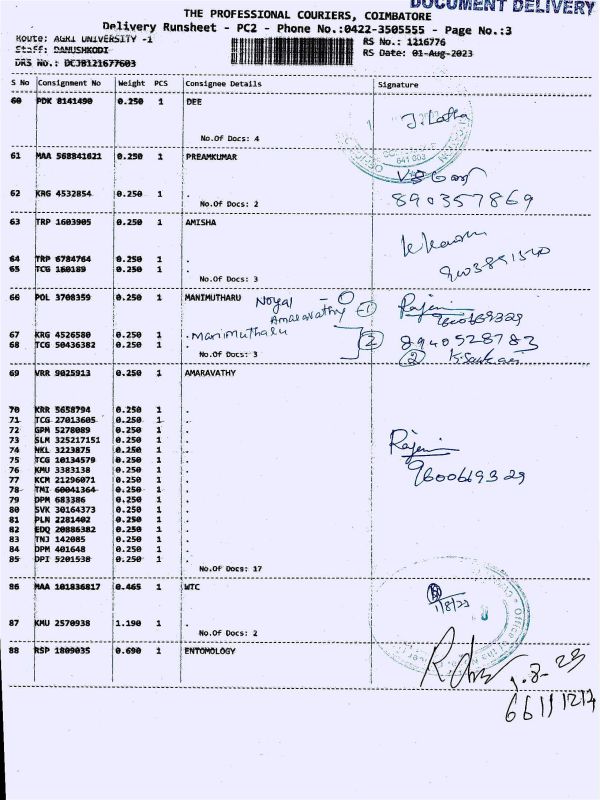 DOCUMENT DELIVERY
THE PROFESSIONAL COURIERS, COIMBATORE
Delivery Runsheet - PC2 - Phone No.:0422-3505555 - Page No.:3
Route: AGRI UNIVERSITY -1
RS No.: 1216776
Staff: DANUSHKODI
RS Date: 01-Aug-2023
DRS No.: DCJB121677603
S No Consignment No Weight PCS Consignee Details Signature
60 PDK 8141490 0.250 1 DEE
J. Latha
No.Of Docs: 4
641 003
61 MAA 568841621 0.250 1 PREAMKUMAR
62 KRG 4532854 0.250 1 .
890357869
No.Of Docs: 2
63 TRP 1603905 0.250 1 AMISHA
64 TRP 6784764 0.250 1 .
65 TCG 160189 0.250 1 .
No.Of Docs: 3
66 POL 3708359 0.250 1 MANIMUTHARU Noyal
Amaravathy -1
9600619329
67 KRG 4526580 0.250 1 . Manimutharu 2 8940528783
68 TCG 50436382 0.250 1 .
No.Of Docs: 3 2
69 VRR 9025913 0.250 1 AMARAVATHY
70 KRR 5658794 0.250 1 .
71 TCG 27013605 0.250 1 .
72 GPM 5278089 0.250 1 .
73 SLM 325217151 0.250 1 .
74 NKL 3223875 0.250 1 .
75 TCG 10134579 0.250 1 .
76 KMU 3383138 0.250 1 .
77 KCM 21296071 0.250 1 .
78 TMI 60041364 0.250 1 .
79 DPM 683386 0.250 1 .
80 SVK 30164373 0.250 1 .
81 PLN 2281402 0.250 1 .
82 EDQ 20886382 0.250 1 .
83 TNJ 142085 0.250 1 .
84 DPM 401648 0.250 1 .
85 DPI 5201538 0.250 1 .
9600619329
No.Of Docs: 17
86 MAA 101836817 0.465 1 WTC
1/8/23
87 KMU 2570938 1.190 1 .
No.Of Docs: 2
88 RSP 1809035 0.690 1 ENTOMOLOGY
66111214